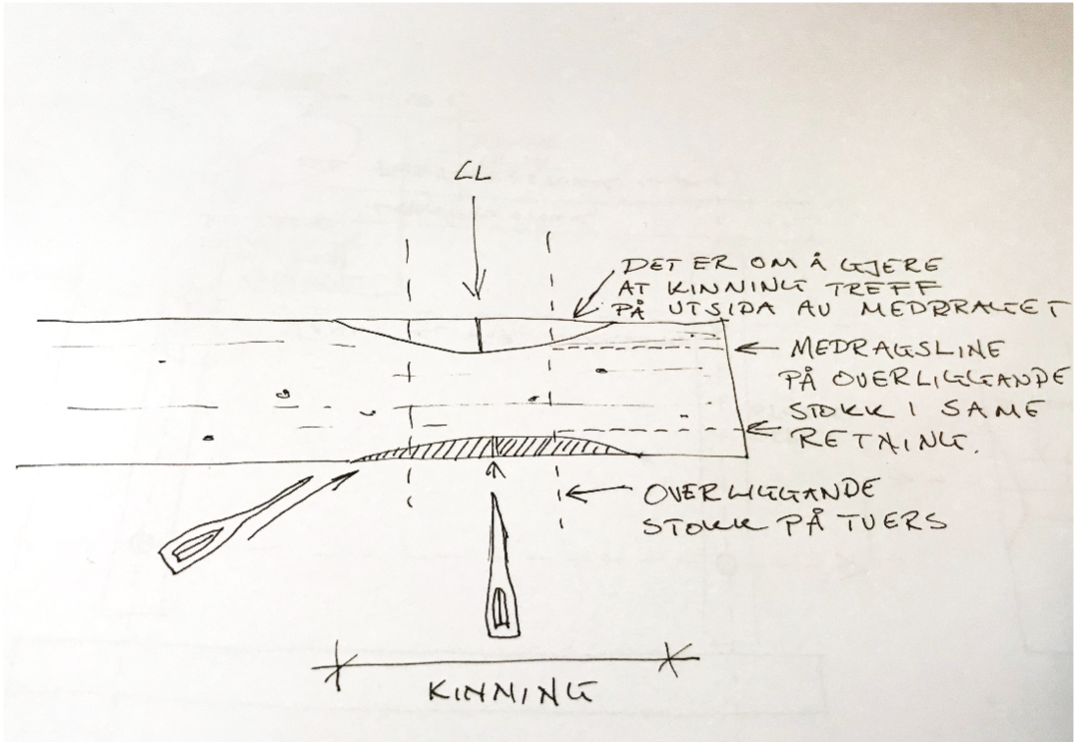 CL
DET ER OM Å GJERE
AT KINNING TREFF
PÅ UTSIDA AV MEDRRAGET
MEDRAGSLINE
PÅ OVERLIGGANDE
STOKK I SAME
RETNING.
OVERLIGGANDE
STOKK PÅ TVERS
KINNING